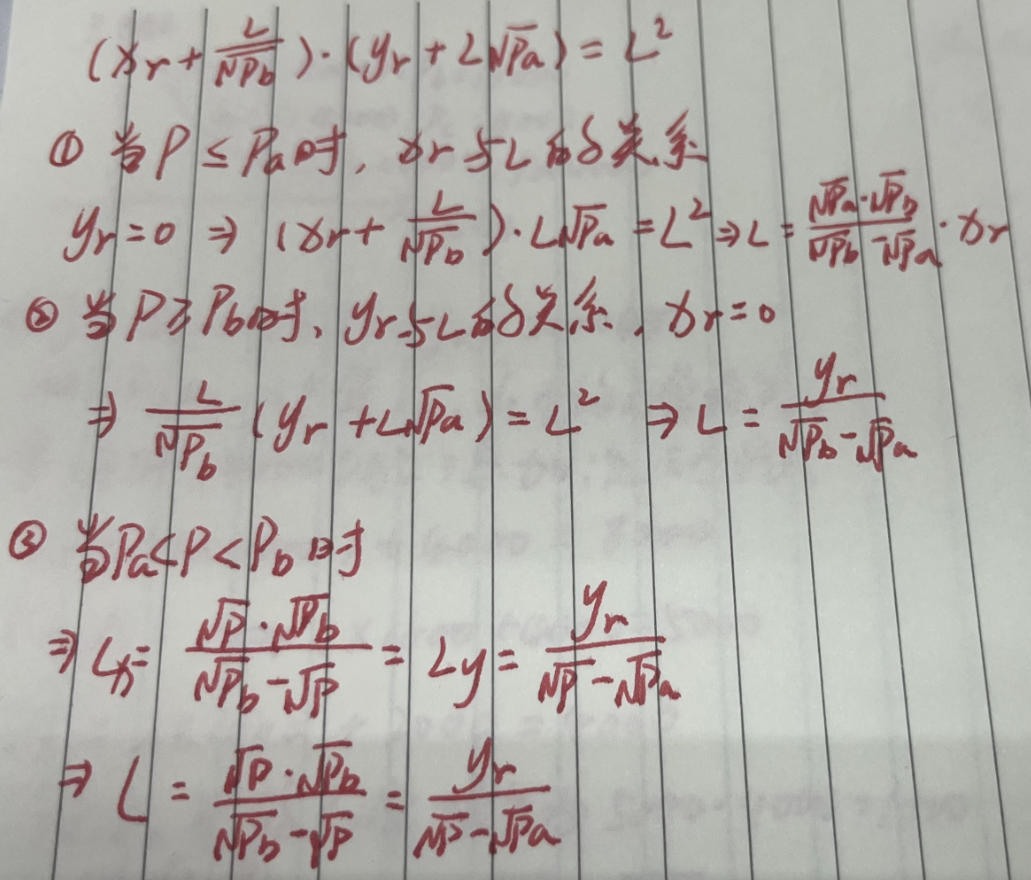 (xr + L/√Pb)·(yr + L√Pa) = L²
① 当P ≤ Pa时, xr与L的关系
yr = 0 ⇒ (xr + L/√Pb)·L√Pa = L² ⇒ L = √Pa·√Pb/(√Pb - √Pa)·xr
② 当P ≥ Pb时, yr与L的关系, xr = 0
⇒ L/√Pb (yr + L√Pa) = L² ⇒ L = yr/(√Pb - √Pa)
③ 当Pa < P < Pb时
⇒ Lx = √P·√Pb/(√Pb - √P) = Ly = yr/(√P - √Pa)
⇒ L = √P·√Pb/(√Pb - √P) = yr/(√P - √Pa)